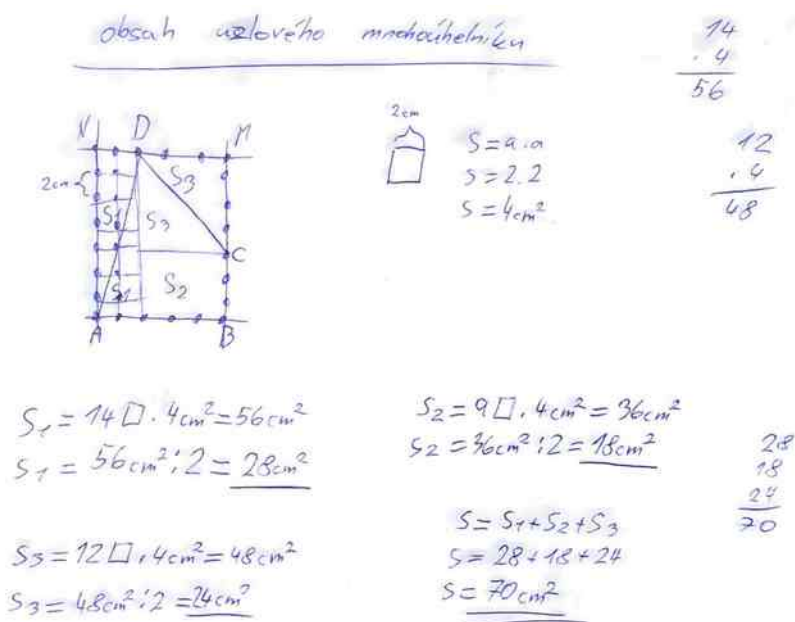 obsah uzlového mnohoúhelníku
14
. 4
56
N D M
2cm
S1 S3
S3
S1 S2
C
A B
2cm
S = a . a
S = 2 . 2
S = 4cm²
12
. 4
48
S1 = 14 □ . 4cm² = 56cm²
S1 = 56cm² : 2 = 28cm²
S2 = 9 □ . 4cm² = 36cm²
S2 = 36cm² : 2 = 18cm²
S3 = 12 □ . 4cm² = 48cm²
S3 = 48cm² : 2 = 24cm²
S = S1 + S2 + S3
S = 28 + 18 + 24
S = 70cm²
28
18
24
70